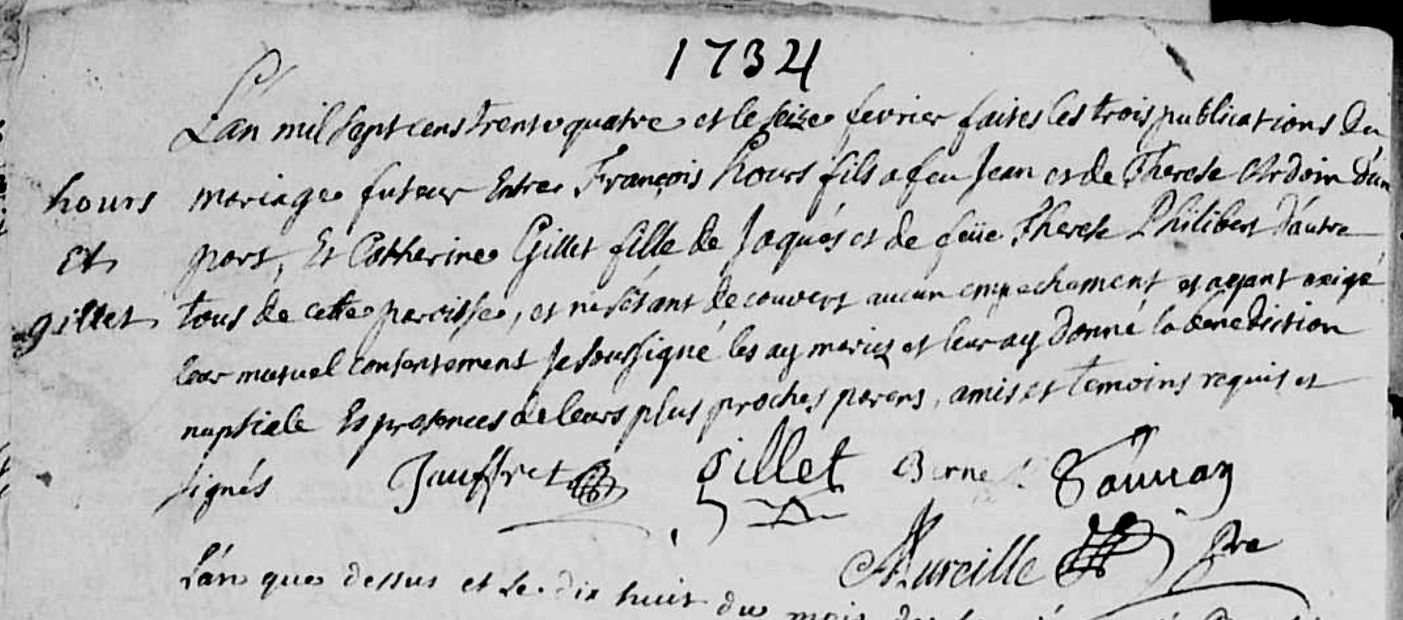 1734
L'an mil sept cens trente quatre et le seize fevrier faites les trois publications du
hours
mariage futeur Entre François hours fils a feu Jean et de Therese Ardoin d'un
et
part, Et Catherine Gillet fille de Jaques et de feüe Therese Philibert d'autre
gillet
tous de cette paroisse, et ne s'étant decouvert aucun empechement et ayant exigé
leur mutuel consentement Je soussigné les ay mariez et leur ay donné la benediction
nuptiale Es presences de leurs plus proches parens, amis et temoins requis et
signés Jauffret gillet Berne
Aureille pre
L'an que dessus et le dix huit du mois